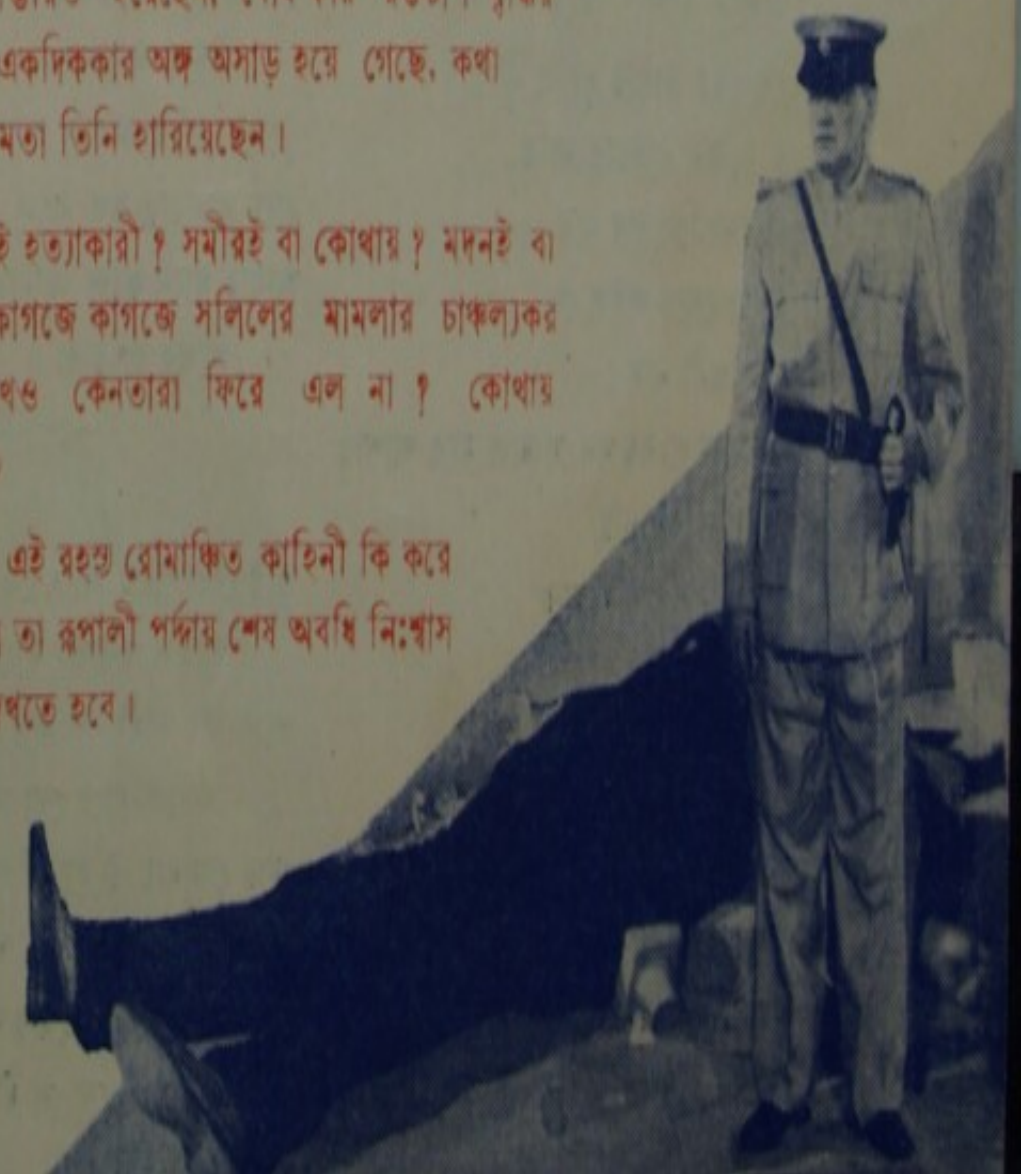 একদিককার অঙ্গ অসাড় হয়ে গেছে, কথা
মতা তিনি হারিয়েছেন।
ই হত্যাকারী ? সমীরই বা কোথায় ? মদনই বা
কাগজে কাগজে সলিলের মামলার চাঞ্চল্যকর
খও কেনতারা ফিরে এল না ? কোথায়
এই রহস্য রোমাঞ্চিত কাহিনী কি করে
তা রূপালী পর্দ্দায় শেষ অবধি নিঃশ্বাস
খতে হবে।